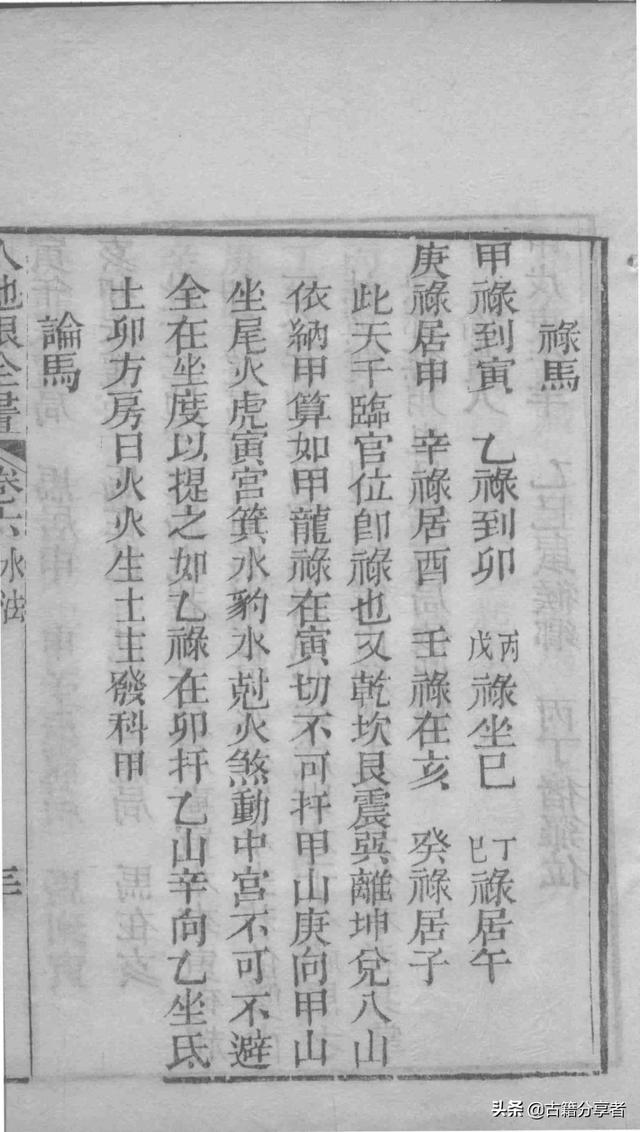 祿馬
甲祿到寅 乙祿到卯 丙戊祿坐巳 丁己祿居午
庚祿居申 辛祿居酉 壬祿在亥 癸祿居子
此天干臨官位卽祿也又乾坎艮震巽離坤兌八山
依納甲算如甲龍祿在寅切不可扦甲山庚向甲山
坐尾火虎寅宮箕水豹水尅火煞動中宮不可不避
全在坐度以提之如乙祿在卯扦乙山辛向乙坐氐
土卯方房日火火生土主發科甲
論馬
人地眼全書 卷六 水法
头条 @古籍分享者